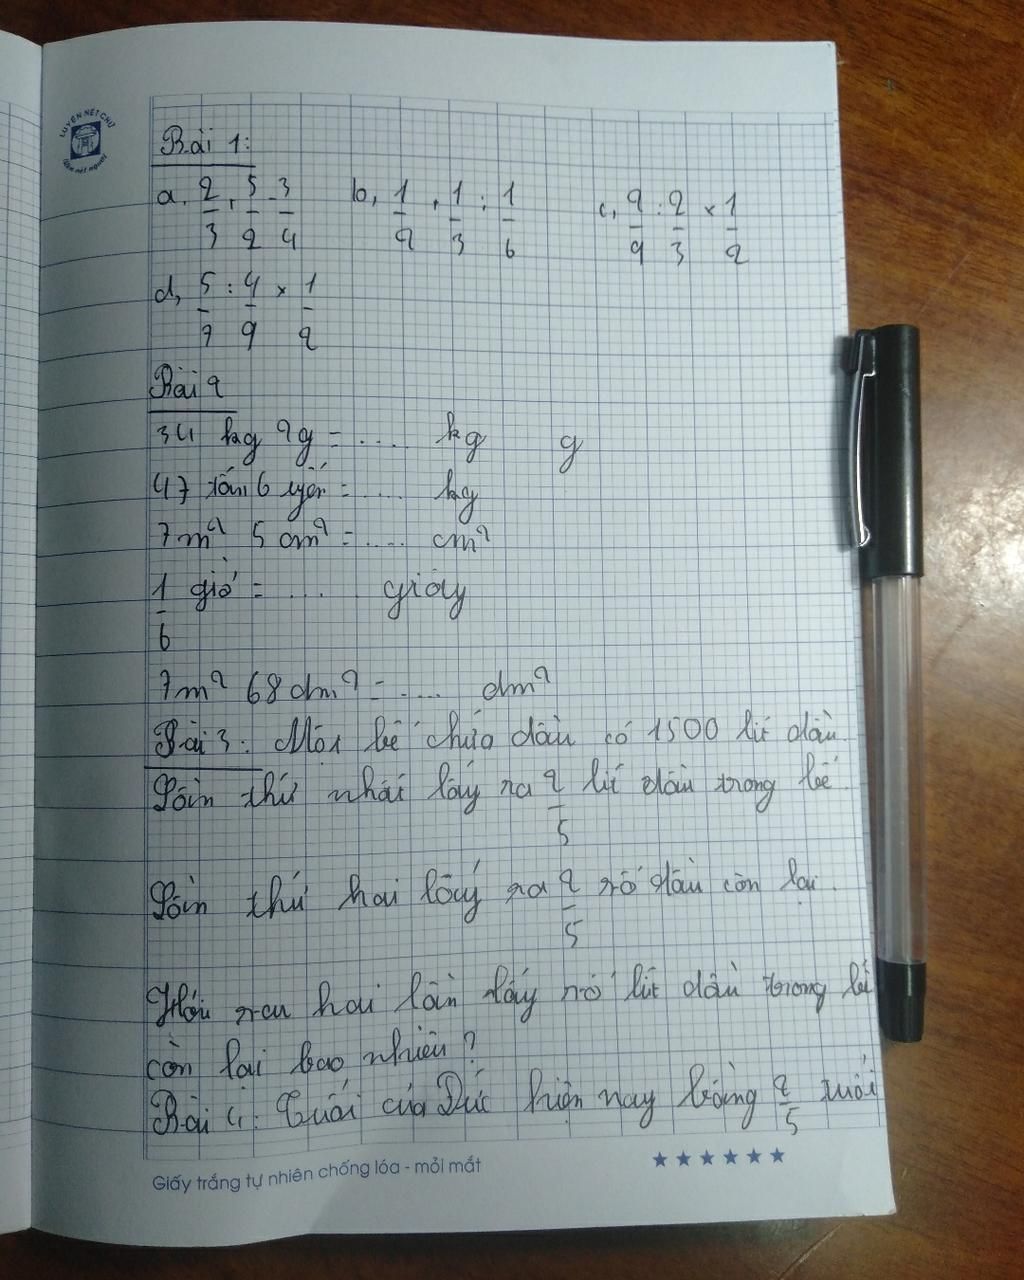 LUYỆN NÉT CHỮ
Bài 1:
a, 2/3 + 5/2 - 3/4 b, 1/2 + 1/3 : 1/6 c, 2/9 : 2/3 x 1/2
d, 5/7 : 4/9 x 1/2
Bài 2
34 kg 2g = .... kg g
47 tấn 6 yến = .... kg
7m² 5 cm² = .... cm²
1/6 giờ = .... giây
7m² 68 dm² = .... dm²
Bài 3: Một bể chứa dầu có 1500 lít dầu.
Lần thứ nhất lấy ra 2/5 lít dầu trong bể.
Lần thứ hai lấy ra 2/5 số dầu còn lại.
Hỏi sau hai lần lấy số lít dầu trong bể
còn lại bao nhiêu?
Bài 4: Tuổi của Đức hiện nay bằng 2/5 tuổi
Giấy trắng tự nhiên chống lóa - mỏi mắt